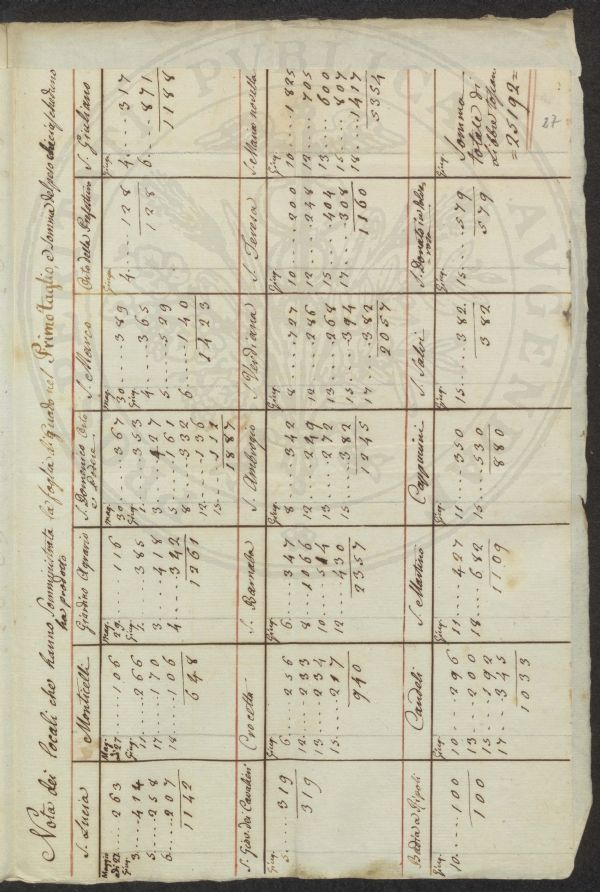 Nota dei locali che hanno Somministrata la foglia di Guado nel Primo taglio e Somma del peso che ciascheduno
ha prodotto
S. Lucia
Maggio
di 27.... 263
Giug.
3.... 414
5.... 258
6.... 207
1142
Monticelli
Mag.
di 27.... 106
Giug.
11.... 266
17.... 170
18.... 106
648
Giardino Agrario
Mag.
29.... 116
Giug.
1.... 385
3.... 418
4.... 342
1261
S. Domenico Orto
e Podere
Mag.
30.... 367
Giug.
1.... 353
3.... 427
5.... 161
8.... 332
12.... 136
15.... 111
1887
S. Marco
Mag.
30.... 389
Giug.
4.... 365
5.... 529
6.... 140
1423
Orto della
Giug.
4.... 128
128
S. Giuliano
Giug.
4.... 317
6.... 871
1188
S. Giov. dei Cavalieri
Giug.
5.... 319
319
Crocetta
Giug.
6.... 256
12.... 233
13.... 234
15.... 217
940
S. Barnaba
Giug.
6.... 347
8.... 1066
10.... 514
12.... 430
2357
S. Ambrogio
Giug.
8.... 342
12.... 249
13.... 272
15.... 382
1245
S. Verdiana
Giug.
8.... 727
12.... 286
13.... 268
15.... 394
17.... 382
2057
S. Teresa
Giug.
10.... 200
12.... 248
15.... 404
17.... 308
1160
S. Maria novella
Giug.
10.... 1825
12.... 705
13.... 600
15.... 807
18.... 1417
5354
Badia a Ripoli
Giug.
10.... 100
100
Candeli
Giug.
10.... 296
13.... 200
15.... 192
17.... 345
1033
S. Martino
Giug.
11.... 427
18.... 682
1109
Cappuccini
Giug.
11.... 350
15.... 530
880
S. Salvi
Giug.
15.... 382
382
S. Donato in Polve
rosa
Giug.
15.... 579
579
Somma
totale di
Libbre toscane
= 25192 =
27
PUBLICA
AUGENDA